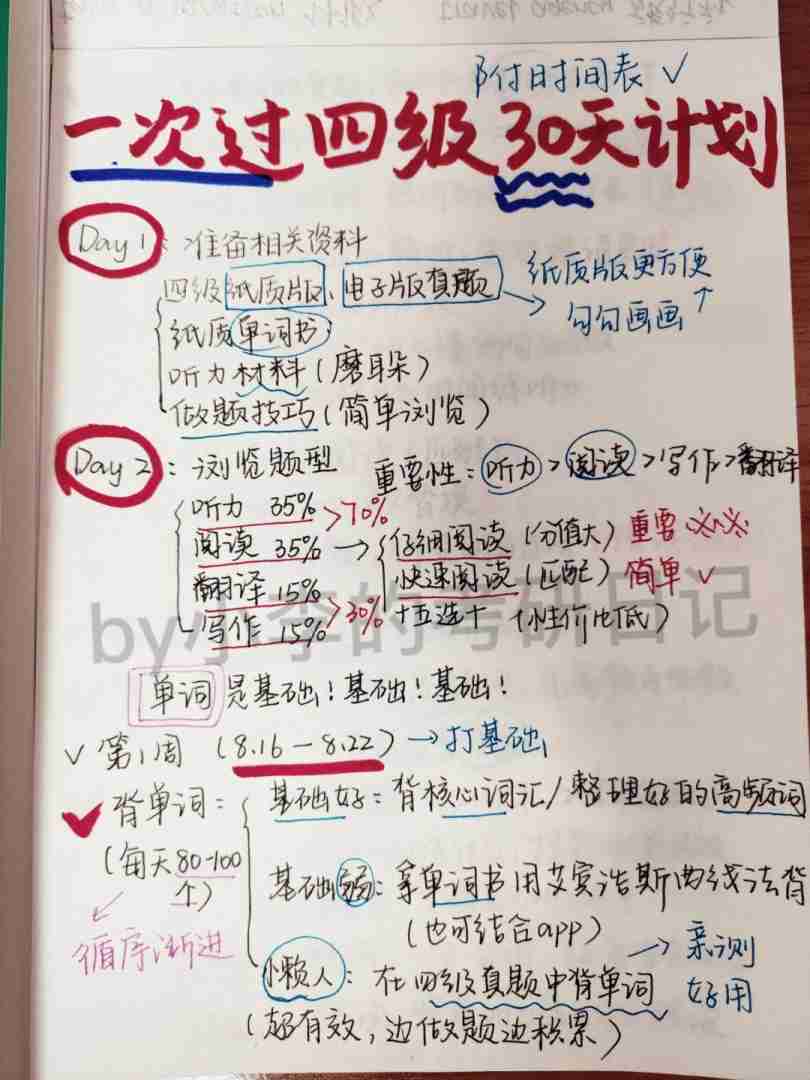 附时间表 ✓
一次过四级30天计划
Day 1：准备相关资料
四级纸质版、电子版真题 → 纸质版更方便
勾勾画画
纸质单词书
听力材料（磨耳朵）
做题技巧（简单浏览）
Day 2：浏览题型 重要性：听力>阅读>写作>翻译
听力 35% >70%
阅读 35% → 仔细阅读（分值大）重要 ※※
翻译 15% 快速阅读（匹配）简单 ✓
写作 15% >30% 十五选十（性价比低）
by小李的考研日记
单词是基础！基础！基础！
✓ 第1周（8.16-8.22）→打基础
✓ 背单词： 基础好：背核心词汇/整理好的高频词
（每天80-100个）
循序渐进
基础弱：拿单词书用艾宾浩斯曲线法背
（也可结合app）
小懒人：在四级真题中背单词 → 亲测好用
（超有效，边做题边积累）